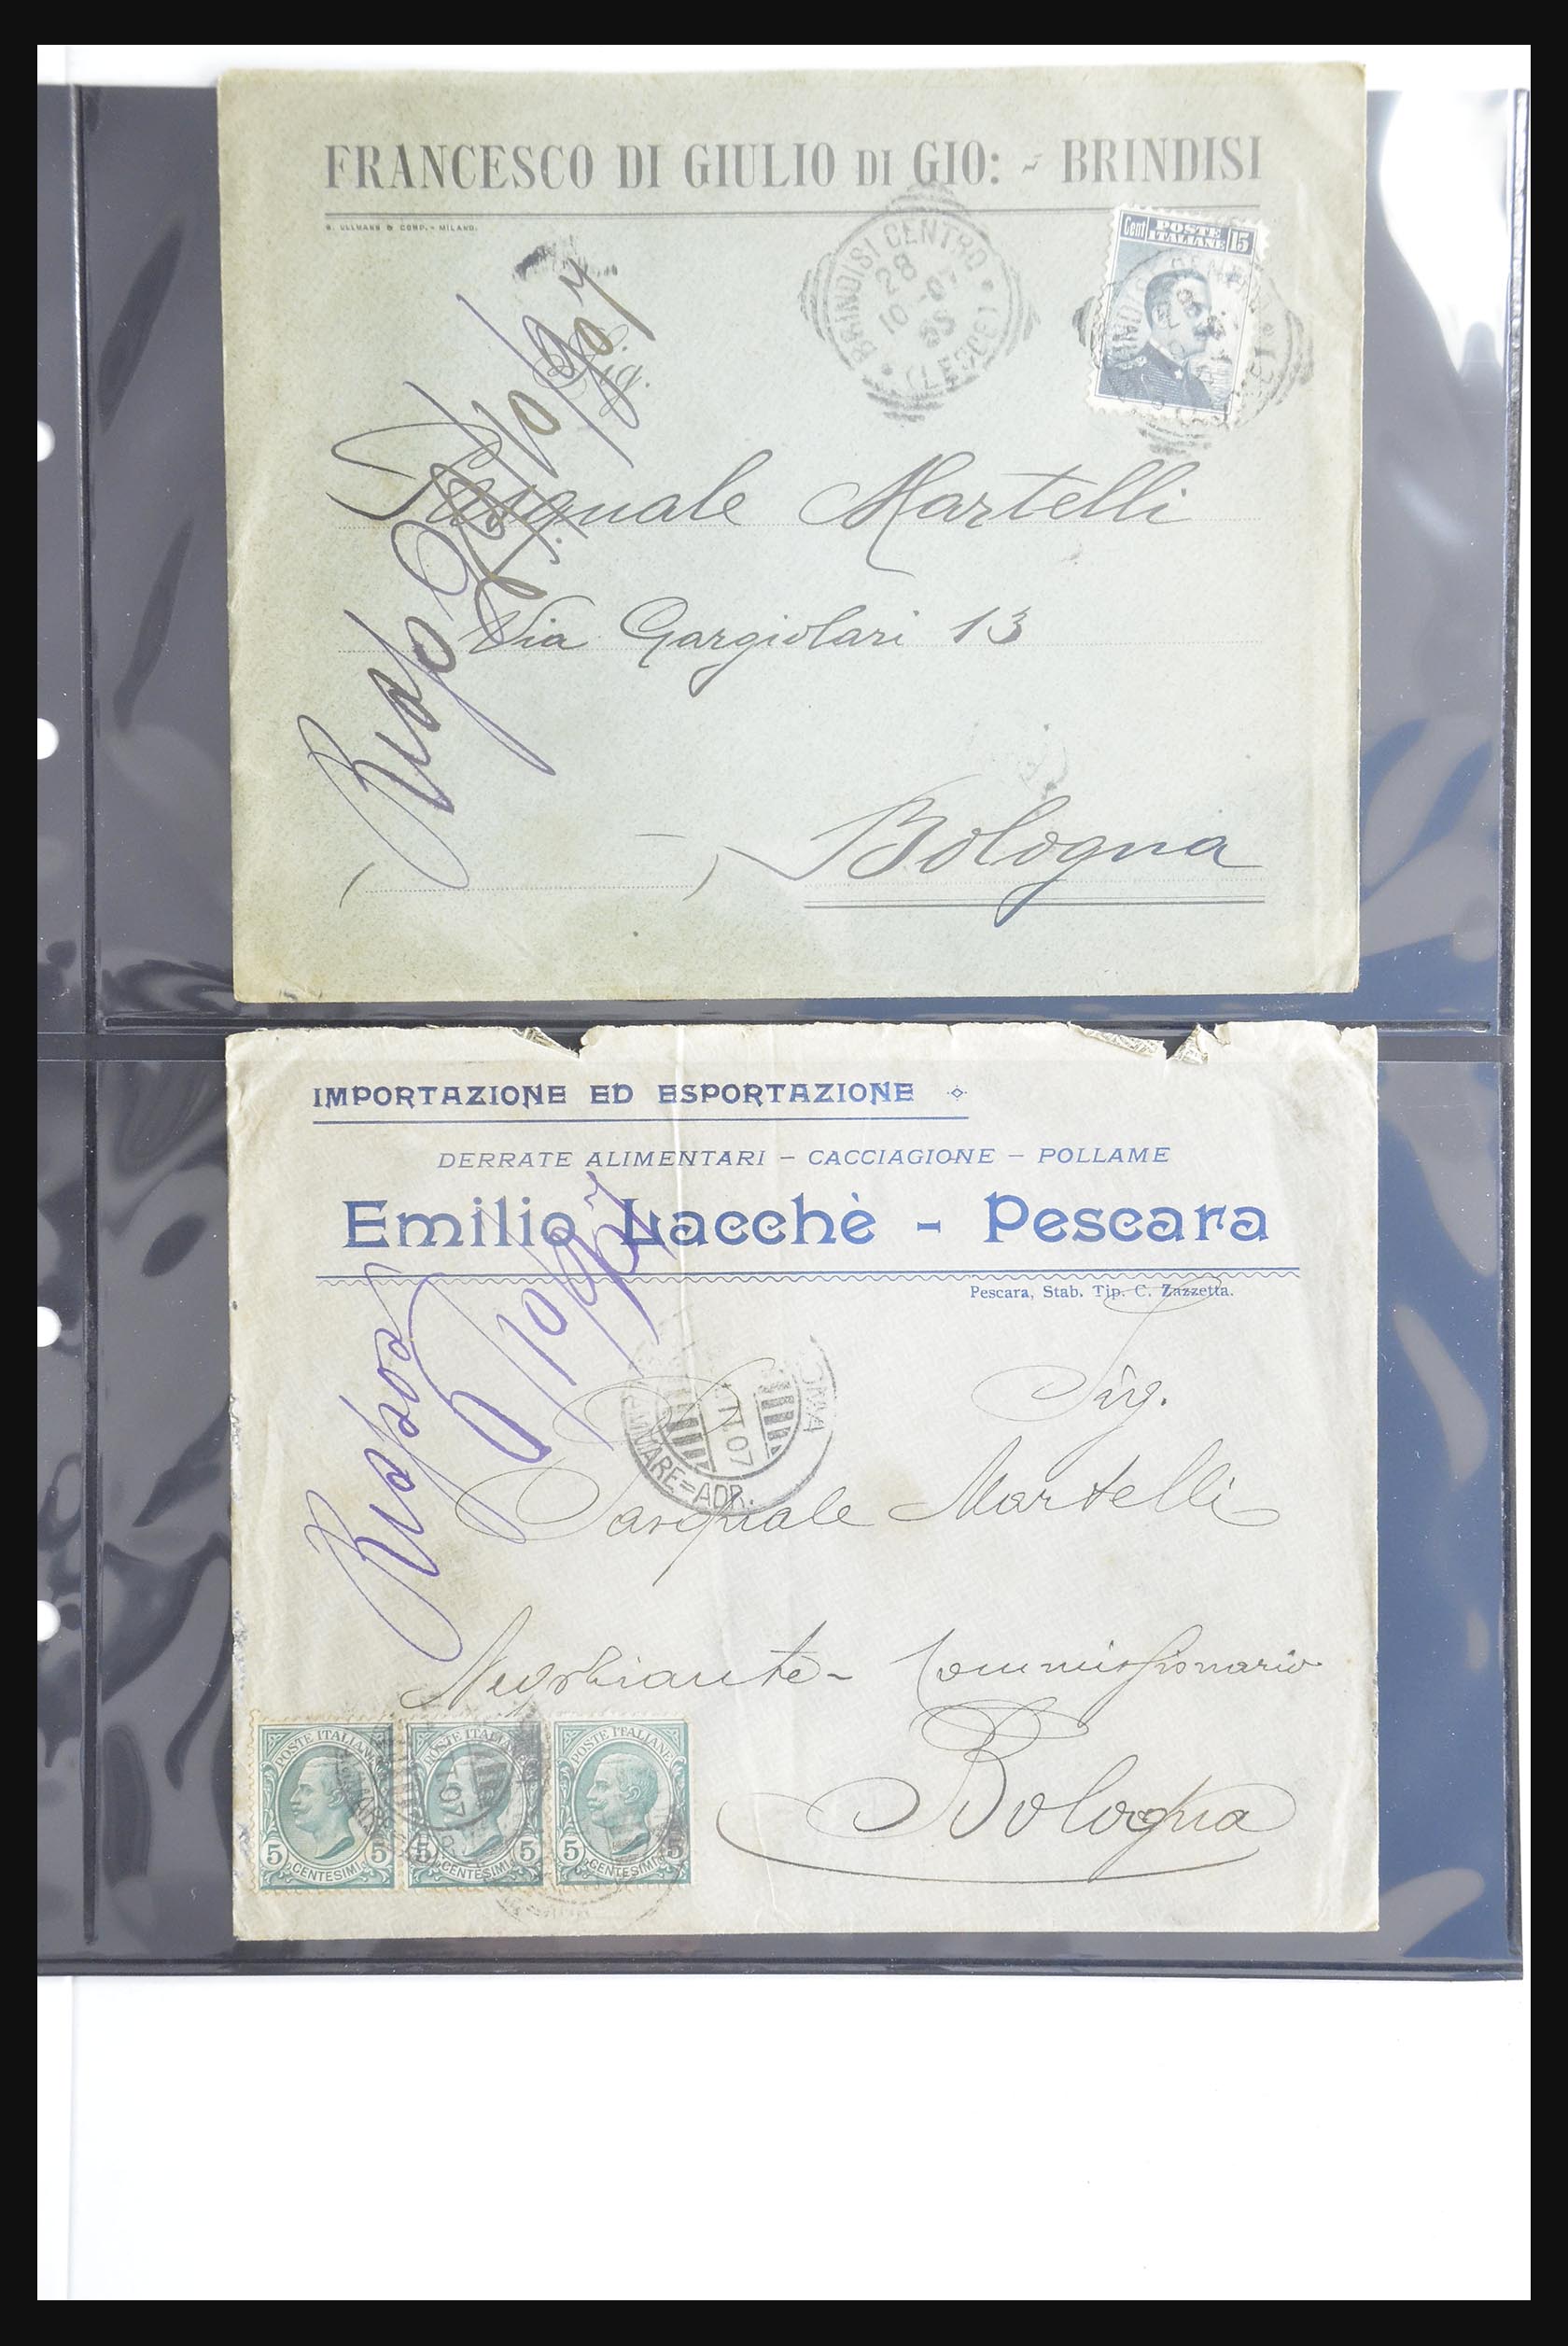 FRANCESCO DI GIULIO DI GIO: - BRINDISI
A. ULLMANN & COMP. - MILANO.
BRINDISI CENTRO
(LECCE)
28
10
Cent POSTE ITALIANE 15
Sig.
Pasquale Martelli
Via Gargiolari 13
Bologna
Risp 29/10/907
IMPORTAZIONE ED ESPORTAZIONE
DERRATE ALIMENTARI – CACCIAGIONE – POLLAME
Emilio Lacchè - Pescara
Pescara, Stab. Tip. C. Zazzetta.
07
=ADR.
Sig.
Pasquale Martelli
Negoziante - Commissionario
Bologna
POSTE ITALIANE
5 CENTESIMI 5
POSTE ITALIANE
5 CENTESIMI 5
POSTE ITALIANE
5 CENTESIMI 5